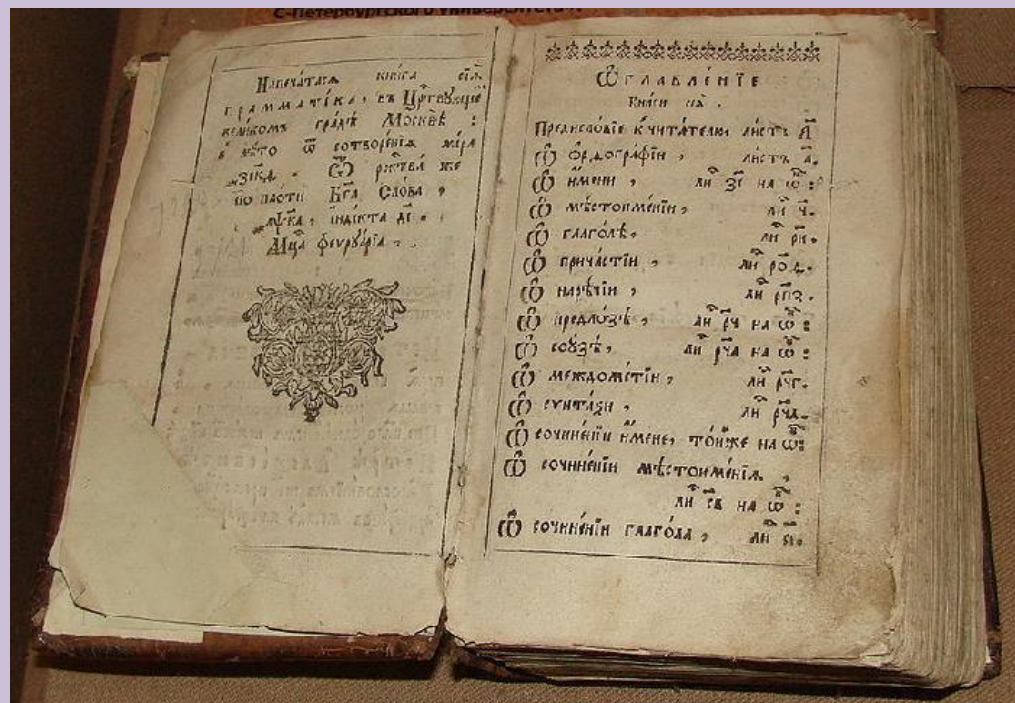 С-Петербургского Университета
Напечатася книга сїѧ̀
грамматіка, въ Црⷭ҇твꙋющемъ
велікомъ градѣ Москвѣ :
в лѣто ѿ сотворенїѧ мїра
҂зсклѳ. Ѿ ржⷭ҇тва́ же
по плоти Бг҃а Слова,
҂аѱк҃а, индікта д҃і.
Мцⷭ҇а феврꙋарїа,
Ѡ҆главле́нїе
Книги сеѧ̀.
Предисло́вїе к̾ чита́телю листъ а҃
Ѽ ѻ҆рѳогра́фїи, листъ а҃.
Ѽ и҆́мени, лиⷭ҇ з҃і на ѡ҆б :
Ѽ мѣстоиме́нїи, лиⷭ҇ ч҃.
Ѽ глаго́лѣ, лиⷭ҇ рн҃.
Ѽ прича́стїи, лиⷭ҇ ро҃д.
Ѽ нарѣ́чїи, лиⷭ҇ рп҃з.
Ѽ предло́зѣ, лиⷭ҇ рч҃ на ѡ҆б :
Ѽ соꙋ́зѣ, лиⷭ҇ рч҃а на ѡ҆б :
Ѽ междоме́тїи, лиⷭ҇ рч҃г.
Ѽ сѵнта́ѯи, лиⷭ҇ рч҃д.
Ѽ сочине́нїи и҆́мене, то́йже на ѡ҆б :
Ѽ сочине́нїи мѣстоиме́нїѧ,
лиⷭ҇ св҃ на ѡ҆б :
Ѽ сочине́нїи глаго́ла, лиⷭ҇